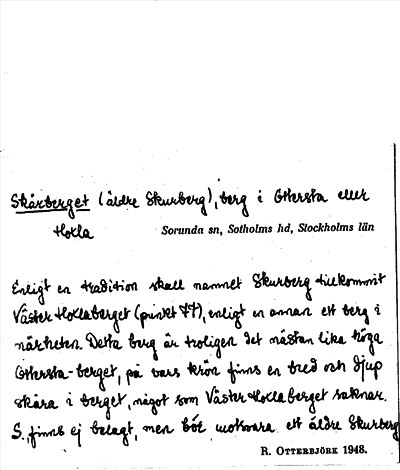 Skårberget (äldre Skurberg), berg i Ottersta eller
Hoxla
Sorunda sn, Sotholms hd, Stockholms län
Enligt en tradition skall namnet Skurberg tillkommit
Väster Hoxlaberget (punkt 77), enligt en annan ett berg i
närheten. Detta berg är troligen det nästan lika höga
Ottersta-berget, på vars krön finns en bred och djup
skåra i berget, något som Väster Hoxlaberget saknar.
S. finns ej belagt, men bör motsvara ett äldre Skurberg
R. OTTERBJÖRK 1948.